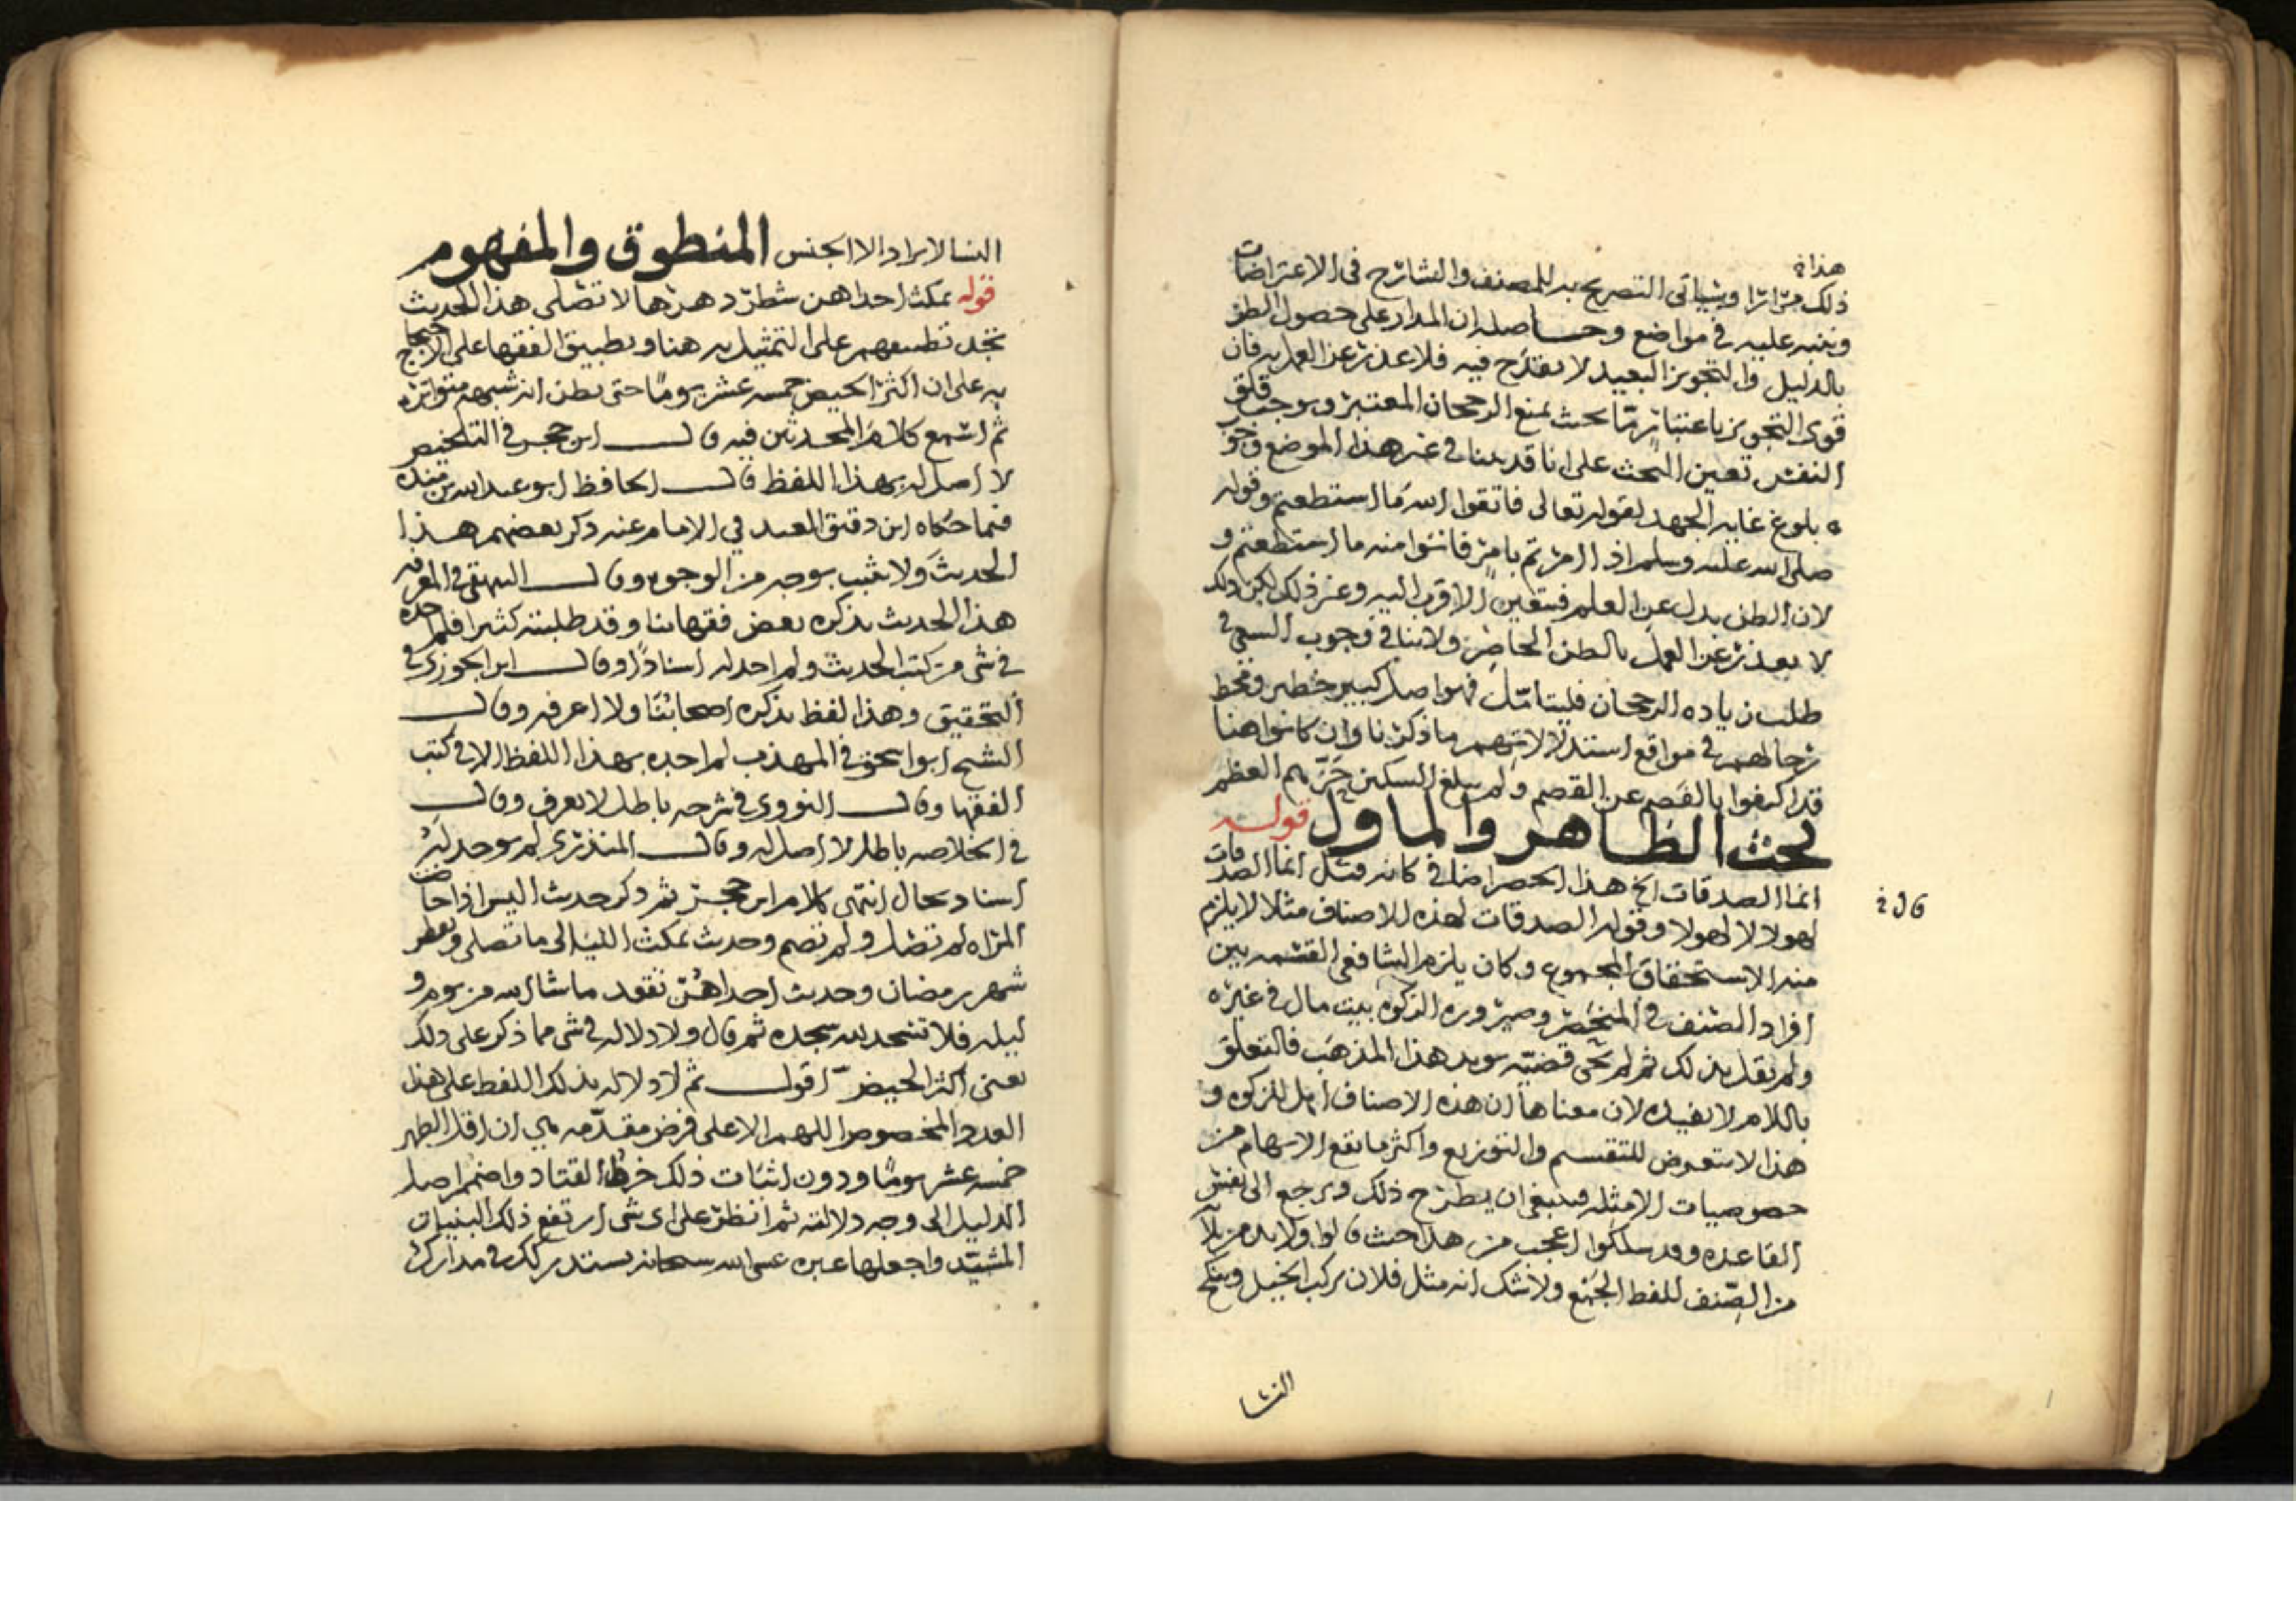 هذا
ذلك مرارا وسياتي التصريح به للمصنف والشارح في الاعتراضات
وننبه عليه في مواضع وحاصله ان المدار على حصول الظن
بالدليل والتجويز البعيد لا يقدح فيه فلا عذر عن العمل به فان
قوي التجويز باعتبار ما بحيث يمنع الرجحان المعتبر ويوجب قلق
النفس تعين البحث على انا قد بينا في غير هذا الموضع وجو
ه بلوغ غايه الجهد لقوله تعالى فاتقوا الله ما استطعتم وقوله
صلى الله عليه وسلم اذا امرتم بامر فاتوا منه ما استطعتم و
لان الظن بدل عن العلم فيتعين الاقرب اليه وغير ذلك لكن ذلك
لا يعذر عن العمل بالظن الحاضر ولا ينافي وجوب السعي في
طلب زياده الرجحان فليتامل فهوا صل كبير خطير ومحط
رحالهم في مواقع استدلالاتهم ما ذكرنا وان كانوا هنا
قد اكتفوا بالقصم عن القصم ولم يبلغ السكين حز بهم العظم
بحث الظاهر والماول قوله
انما الصدقات الخ هذا الحصر اضافي كانه قيل انما الصدقات
لهولا لا لهولا وقوله الصدقات لهذه الاصناف مثلا لا يلزم
منه الا استحقاق المجموع وكان يلزم الشافعي القسمه بين
افراد الصنف في المنحصر وصيروره الزكوة بيت مال في غيره
ولم يقل بذلك ثم لم تجي قضيه يويد هذا المذهب فالتعلق
باللام لا يفيده لان معناها ان هذه الاصناف اهل للزكوه و
هذا لا يتعرض للتقسيم والتوزيع واكثر ما يقع الايهام من
خصوصيات الامثله فينبغي ان يطرح ذلك ويرجع الى نفس
القاعده وقد سلكوا اعجب من هذا حيث قالوا ولا بد من ثلا
من الصنف للفظ الجمع ولا شك انه مثل فلان يركب الخيل وينكح
النسا
النسا لا يراد الا الجنس المنطوق والمفهوم
قوله تمكث احداهن شطر دهرها لا تصلي هذا الحديث
تجد تطبيقهم على التمثيل به هنا وتطبيق الفقها على الاحتجاج
به على ان اكثر الحيض خمسه عشر يوما حتى يظن انه شبهه متواتره
ثم اسمع كلام المحدثين فيه قال ابن حجر في التلخيص
لا اصل له بهذا اللفظ قال الحافظ ابو عبد الله بن منده
فيما حكاه ابن دقيق العيد في الامام عنه ذكر بعضهم هذا
الحديث ولا يثبت بوجه من الوجوه وقال البيهقي في المعرفه
هذا الحديث يذكره بعض فقهائنا وقد طلبته كثيرا فلم اجده
في شي من كتب الحديث ولم اجد له اسنادا وقال ابن الجوزي في
التحقيق وهذا لفظ يذكره اصحابنا ولا اعرفه وقال
الشيخ ابو اسحق في المهذب لم اجده بهذا اللفظ الا في كتب
الفقها وقال النووي في شرحه باطل لا يعرف وقال
في الخلاصه باطل لا اصل له وقال المنذري لم يوجد له
اسناد بحال انتهى كلام ابن حجر ثم ذكر حديث اليس اذا حاضت
المراه لم تصل ولم تصم وحديث تمكث الليالي ما تصلي وتفطر
شهر رمضان وحديث احداهن تقعد ما شا الله من يوم و
ليله فلا تسجد لله سجده ثم قال ولا دلاله في شي مما ذكر على ذلك
يعني اكثر الحيض اقول ثم لا دلاله بذلك اللفظ على هذا
العدد المخصوص اللهم الا على فرض مقدمه هي ان اقل الطهر
خمسه عشر يوما ودون اثبات ذلك خرط القتاد واضمم اصل
الدليل الى وجه دلالته ثم انظر على اي شي ارتفع ذلك البنيان
المشيد واجعلها عبره عسى الله سبحانه يستدرك لك في مدارك